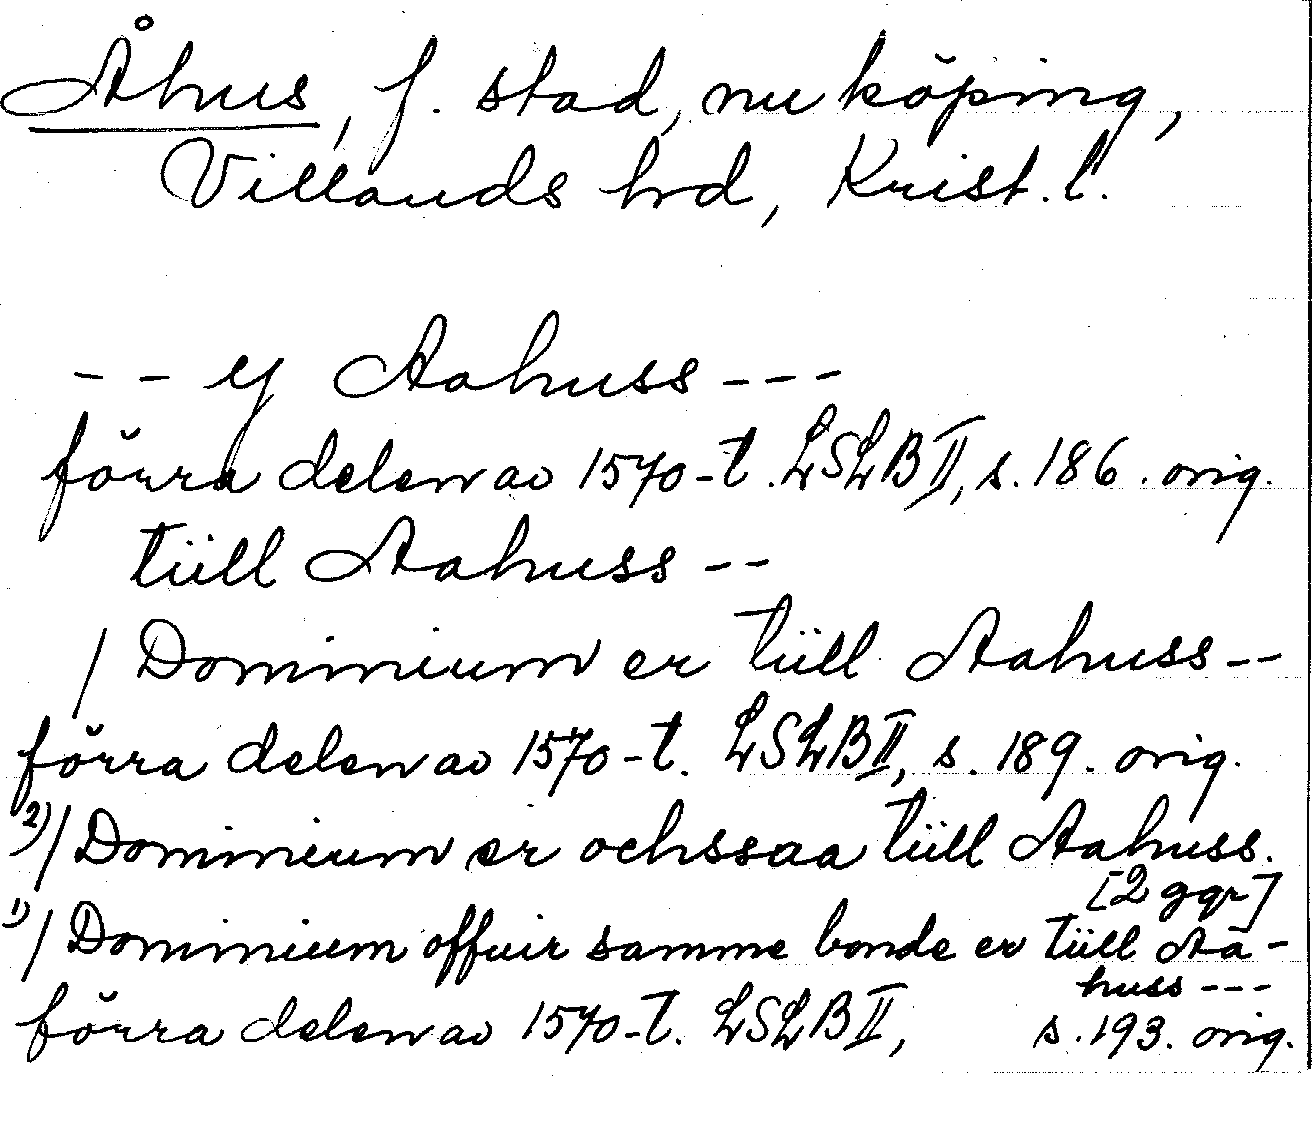 Åhus, f. stad, nu köping,
Villands hrd, Krist. l.
- - ÿ Aahuss - - -
förra delen av 1570-t. LSLB II, s. 186. orig.
tüll Aahuss - -
/ Dominium er tüll Aahuss - -
förra delen av 1570-t. LSLB II, s. 189. orig.
2) / Dominium er ochssaa tüll Aahuss.
[2 ggr]
1) / Dominium offuir samme bonde er tüll Aa-
huss - - -
förra delen av 1570-t. LSLB II, s. 193. orig.